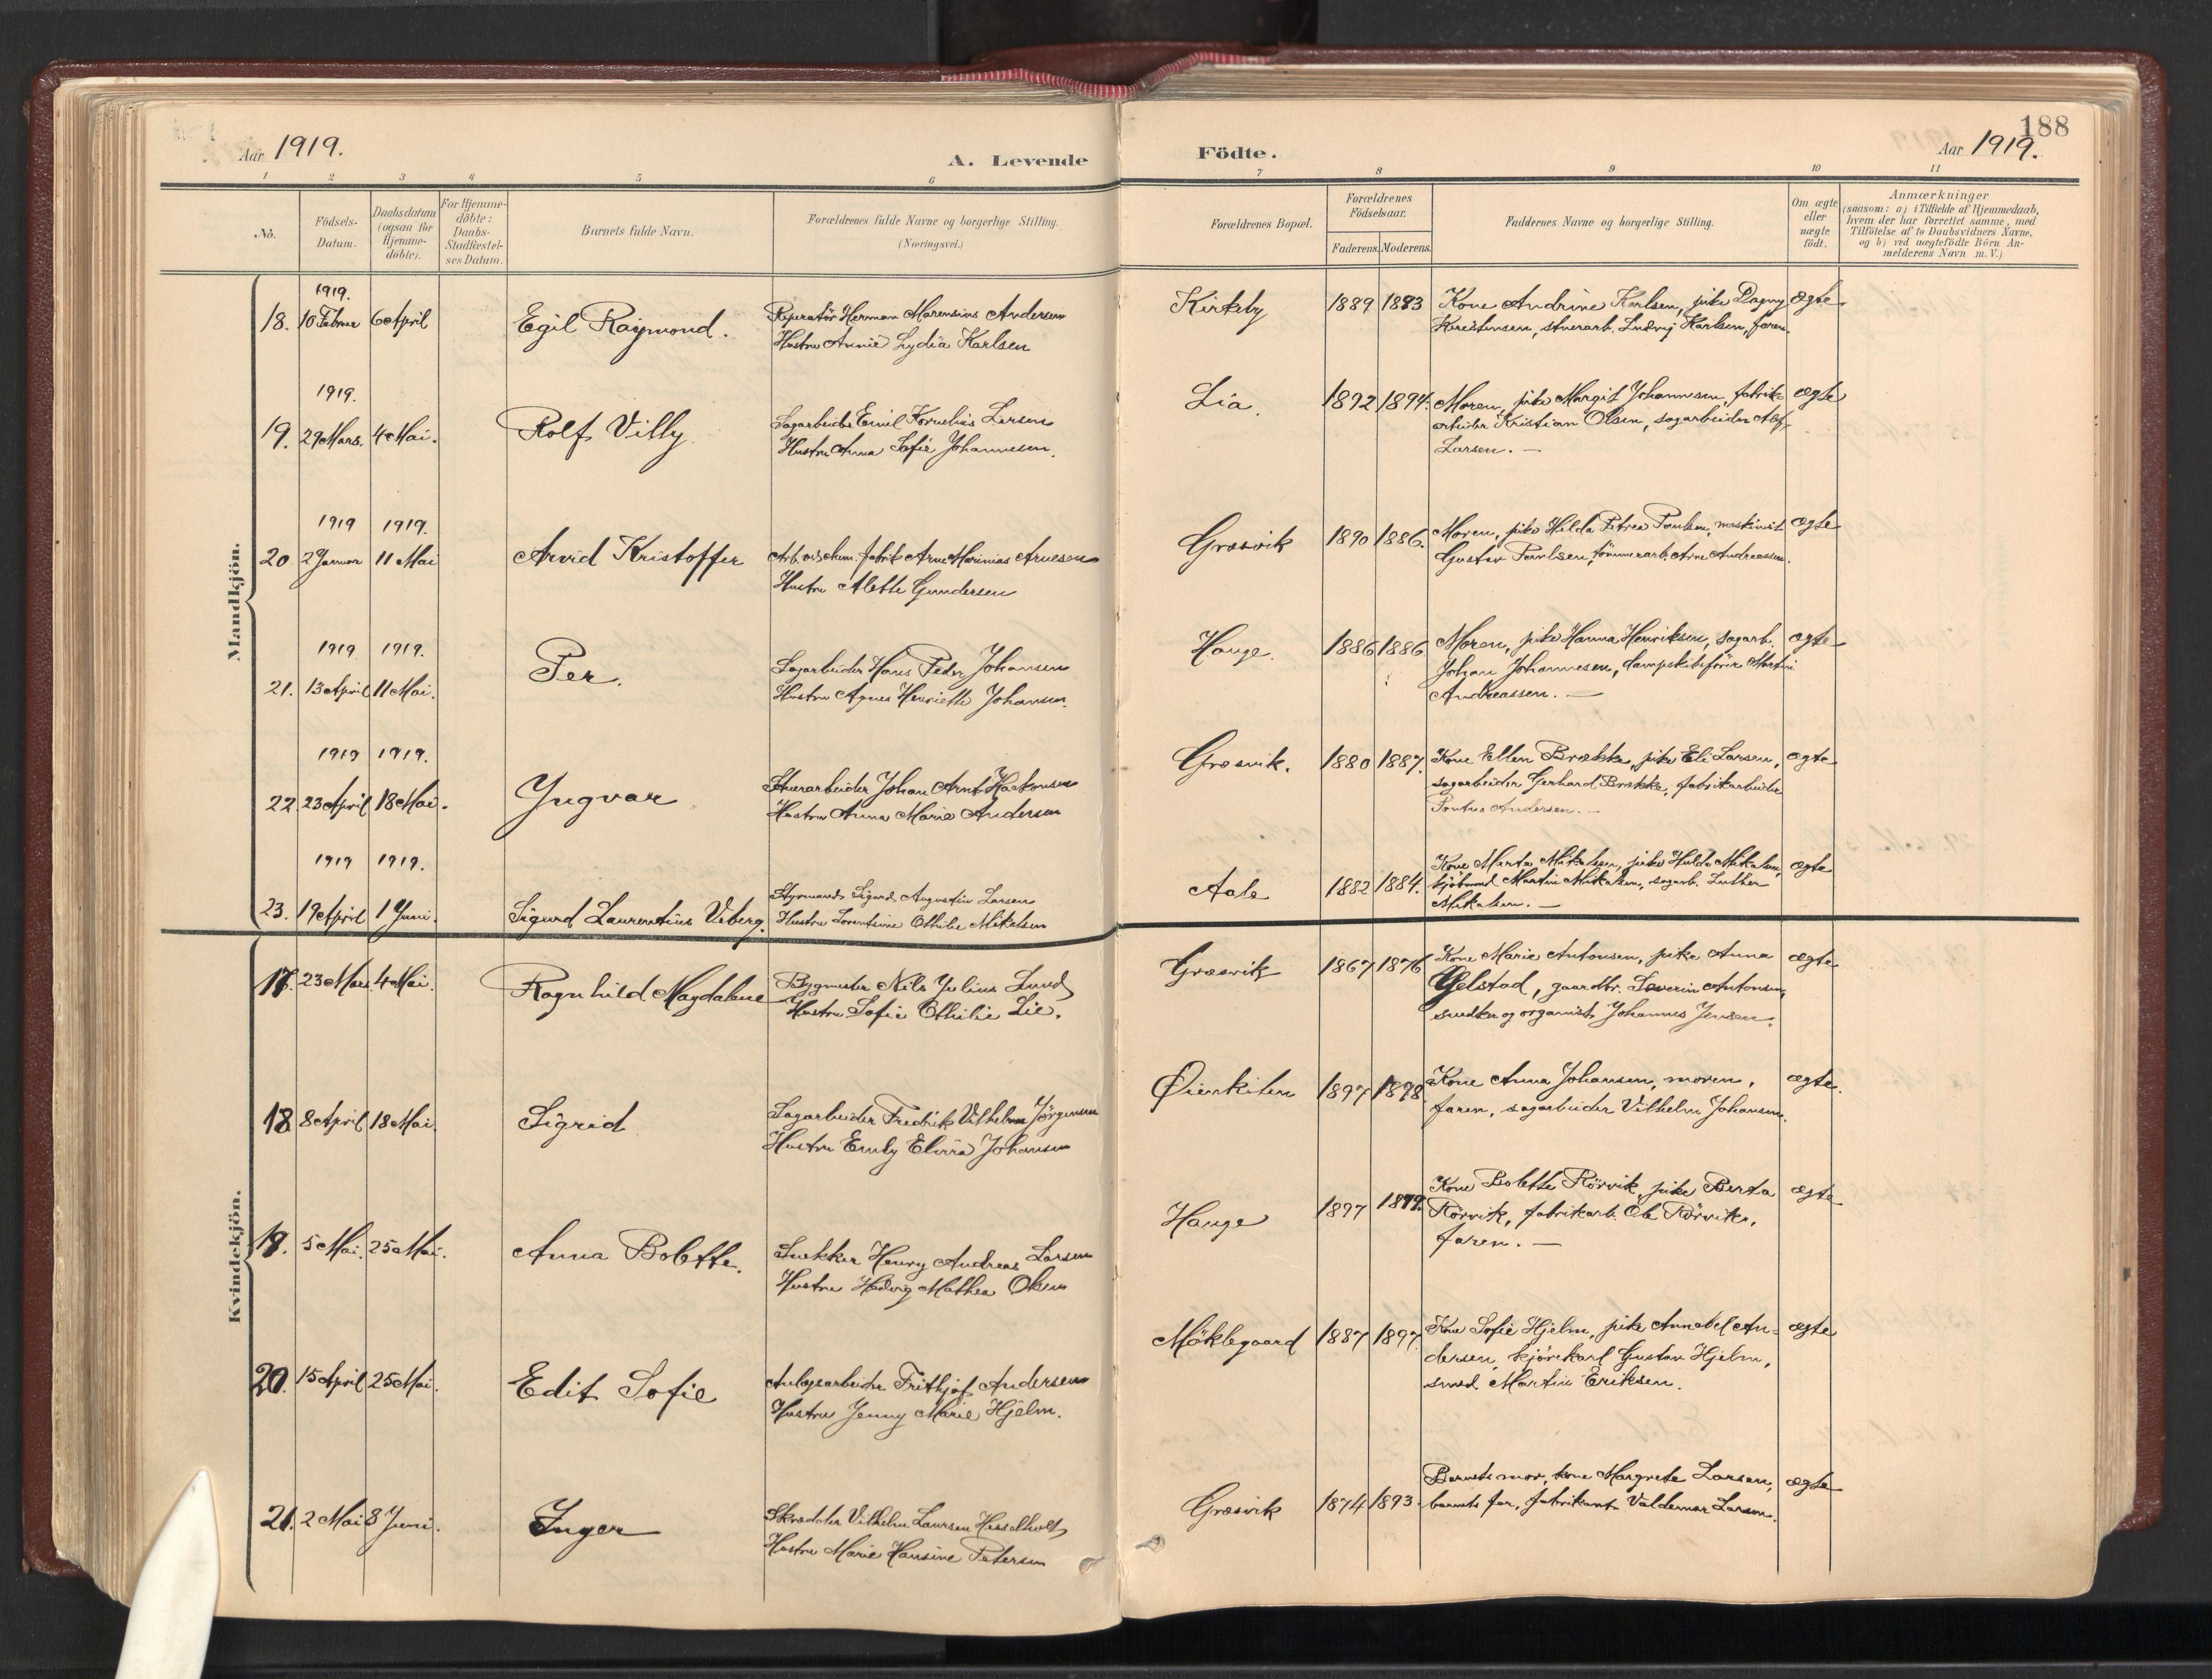 Aar 1919.
A. Levende
Födte.
188
Aar 1919.
1 2 3 4 5 6 7 8 9 10 11
No.
Födsels-
Datum.
Daabsdatum
(ogsaa for
Hjemme-
döbte).
For Hjemme-
döbte:
Daabs-
Stadfæstel-
ses Datum.
Barnets fulde Navn.
Forældrenes fulde Navne og borgerlige Stilling.
(Næringsvei.)
Forældrenes Bopæl.
Forældrenes
Födselsaar.
Faderens. Moderens.
Faddernes Navne og borgerlige Stilling.
Om ægte
eller
uægte
födt.
Anmærkninger
(saasom: a) i Tilfælde af Hjemmedaab,
hvem der har forrettet samme, med
Tilföielse af to Daabsvidners Navne,
og b) ved uægtefödte Börn An-
melderens Navn m. V.)
Mandkjön.
1919.
18. 10 Februar 6 April
Egil Raymond.
Reperatör Herman Marensius Andersen
Hustru Annie Lydia Karlsen
Kirkeby 1889 1893
Kone Andrine Karlsen, pike Dagny
Kristensen, stuerarb. Ludvig Karlsen, faren.
ægte
1919.
19. 29 Mars. 4 Mai.
Rolf Villy
Sagarbeider Emil Kornelius Larsen
Hustru Anna Sofie Johannesen.
Lia. 1892 1894.
Moren, pike Margit Johannesen, fabrik-
arbeider Kristian Olsen, sagarbeider Alf
Larsen. —
ægte
1919 1919.
20 2 Januar 11 Mai
Arvid Kristoffer
Arb. ved chem. fabrik Arne Marinius Arnesen
Hustru Alette Gundersen
Græsvik 1890 1886.
Moren, pike Hilda Petrea Paulsen, maskinist
Gustav Paulsen, tömmerarb. Arne Andreassen.
ægte
1919 1919.
21. 13 April 11 Mai.
Per.
Sagarbeider Hans Peder Johansen
Hustru Agnes Henriette Johansen.
Hauge. 1886 1886
Moren, pike Hanna Henriksen, sagarb.
Johan Johannesen, dampskibsförer Martin
Andreassen. —
ægte
1919 1919.
22 23 April 18 Mai.
Yngvar
Stuerarbeider Johan Arnt Haakonsen
Hustru Anna Marie Andersen
Græsvik. 1880 1887.
Kone Ellen Brække, pike Eli Larsen,
sagarbeider Gerhard Brække, fabrikarbeider
Pontus Andersen. —
ægte
1919 1919.
23. 19 April 1 Juni.
Sigurd Laurentius Viberg.
Styrmand Sigurd Augustin Larsen
Hustru Lorentsine Othilie Mikalsen
Aale 1882 1884.
Kone Marta Mikalsen, pike Hulda Mikalsen,
kjöbmand Martin Mikalsen, sagarb. Luther
Mikalsen. —
ægte
Kvindekjön.
17. 23 Mars 4 Mai.
Ragnhild Magdalene
Bygmester Nils Julius Lund
Hustru Sofie Othilie Lie.
Græsvik 1867 1876
Kone Marie Antonsen, pike Anna
Gjelstad, gaardbr. Severin Antonsen,
snedker og organist Johannes Jensen.
ægte
18 8 April 18 Mai.
Sigrid
Sagarbeider Fredrik Vilhelm Jörgensen
Hustru Emly Elvira Johansen
Øienkilen 1897 1898
Kone Anna Johansen, moren,
faren, sagarbeider Vilhelm Johansen.
ægte.
19. 5 Mai. 25 Mai.
Anna Bolette.
Snekker Henry Andreas Larsen
Hustru Hedvig Mathea Olsen
Hauge 1897 1899.
Kone Bolette Rörvik, pike Berta
Rörvik, fabrikarb. Ole Rörvik,
faren. —
ægte
20. 15 April 25 Mai.
Edit Sofie
Anlægsarbeider Frithjof Andersen
Hustru Jenny Marie Hjelm.
Möklegaard 1887 1897.
Kone Sofie Hjelm, pike Annabel An-
dersen, kjörekarl Gustav Hjelm,
smed Martin Eriksen.
ægte
21. 2 Mai 8 Juni.
Inger
Skrædder Vilhelm Laursen Hesselholt
Hustru Marie Hansine Petersen
Græsvik 1874 1893.
Barnets mor, kone Margrete Larsen,
barnets far, fabrikant Valdemar Larsen.
ægte